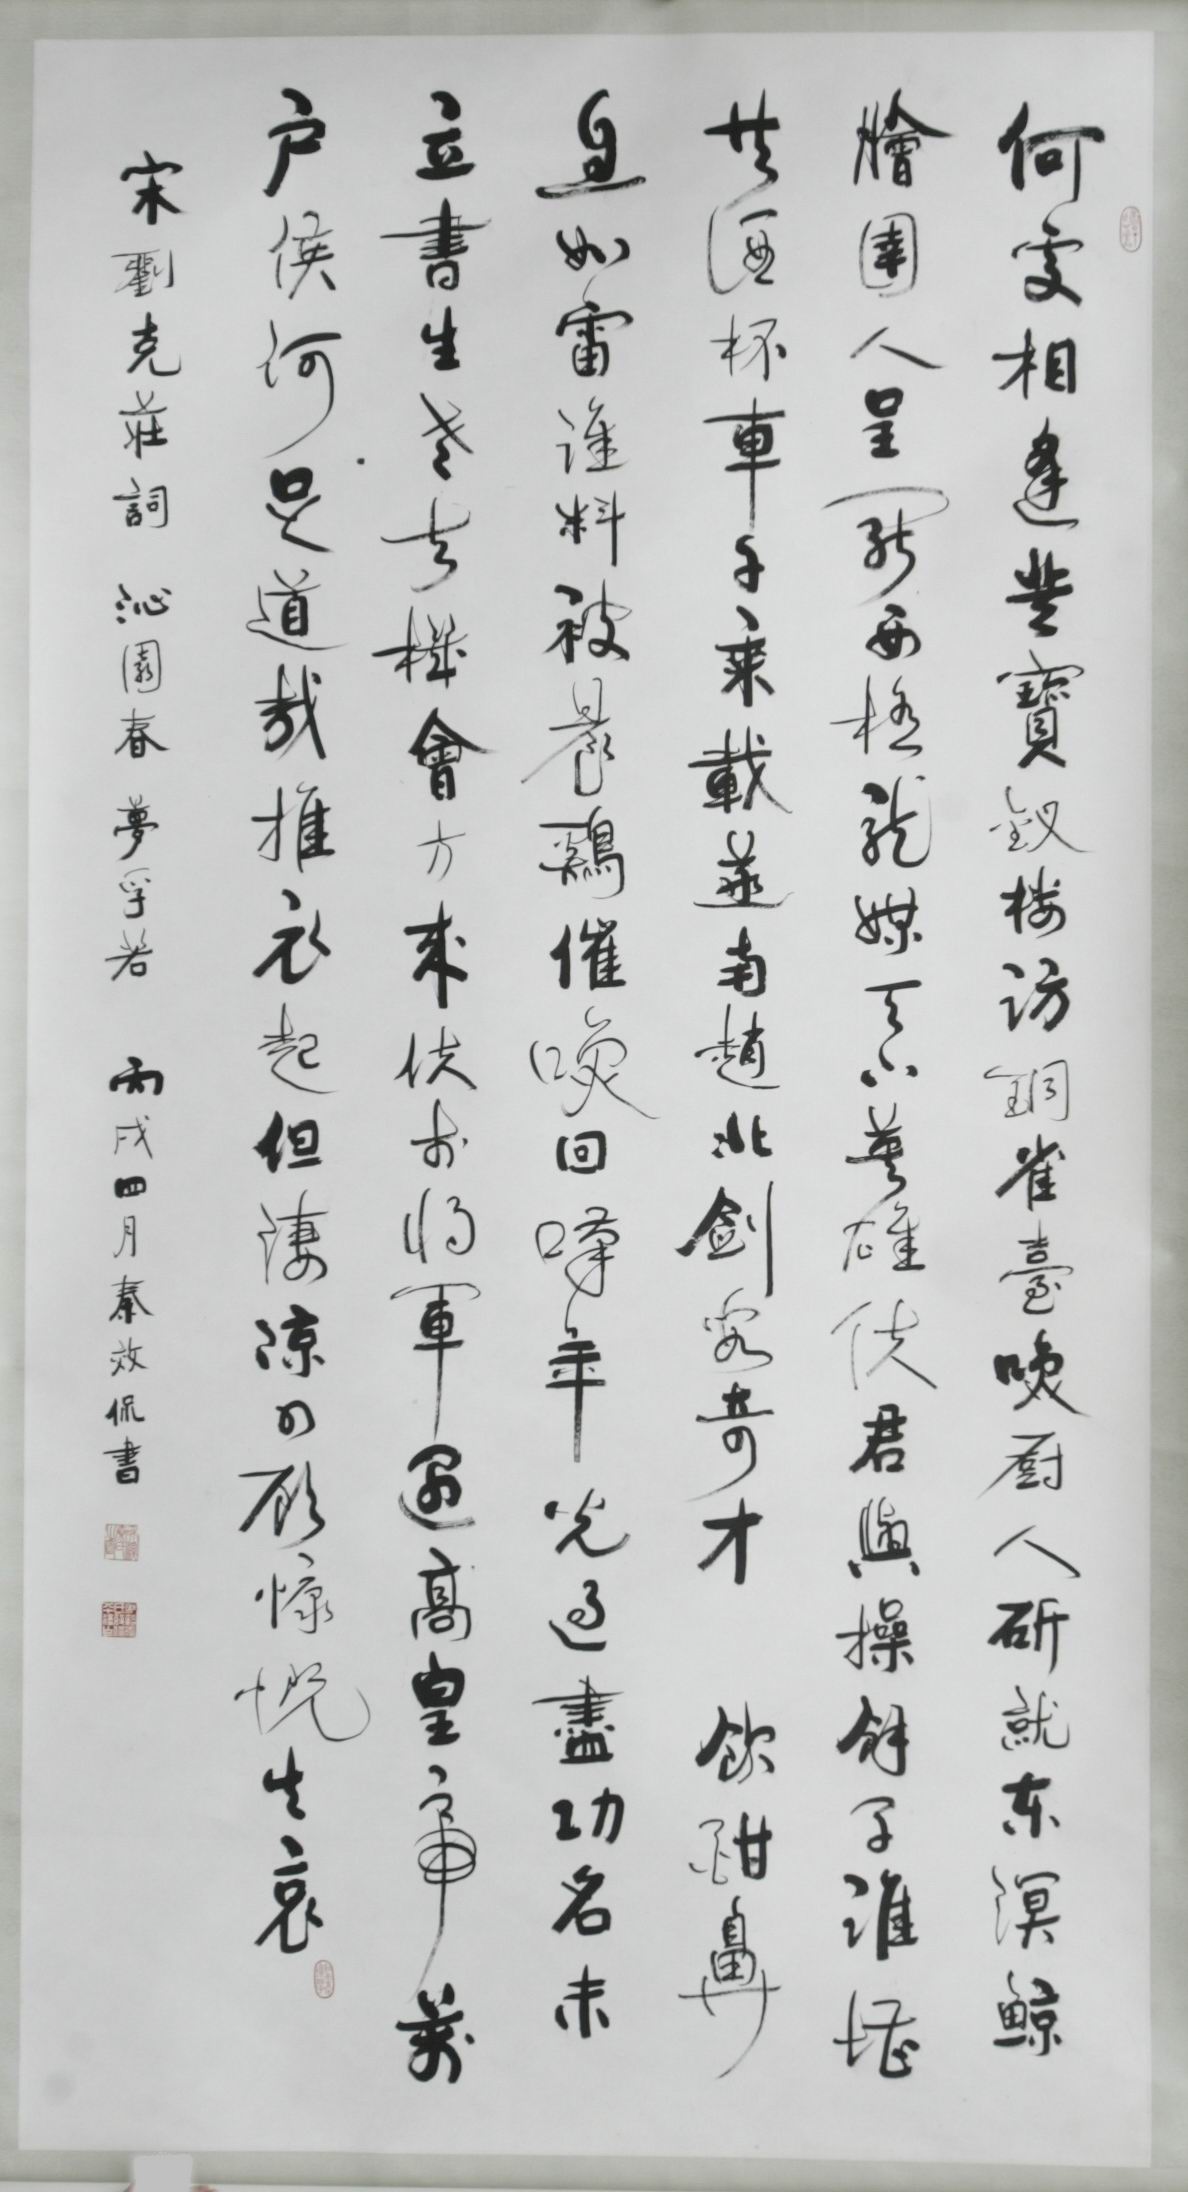 何處相逢登寶釵樓訪銅雀臺喚廚人斫就东溟鯨
膾圉人呈罷西極龍媒天下英雄使君與操餘子誰堪
共酒杯車千乘載燕南趙北劍客奇才 飲酣鼻
息如雷誰料被晨鷄催喚回嘆年光過盡功名未
立書生老去機會方來使李將軍遇高皇帝萬
户侯何足道哉推衣起但淒涼四顧慷慨生哀
宋劉克莊詞 沁園春 夢孚若 丙戌四月秦效侃書